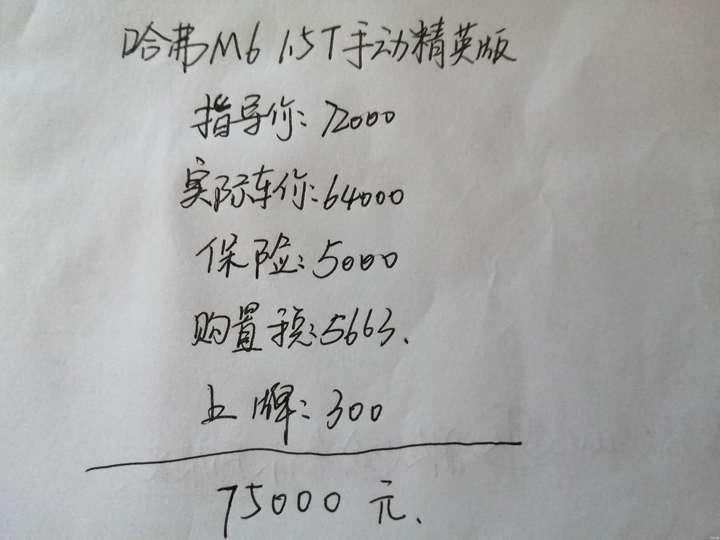 哈弗M6 1.5T手动精英版
指导价:72000
实际车价:64000
保险:5000
购置税:5663.
上牌:300
75000元.